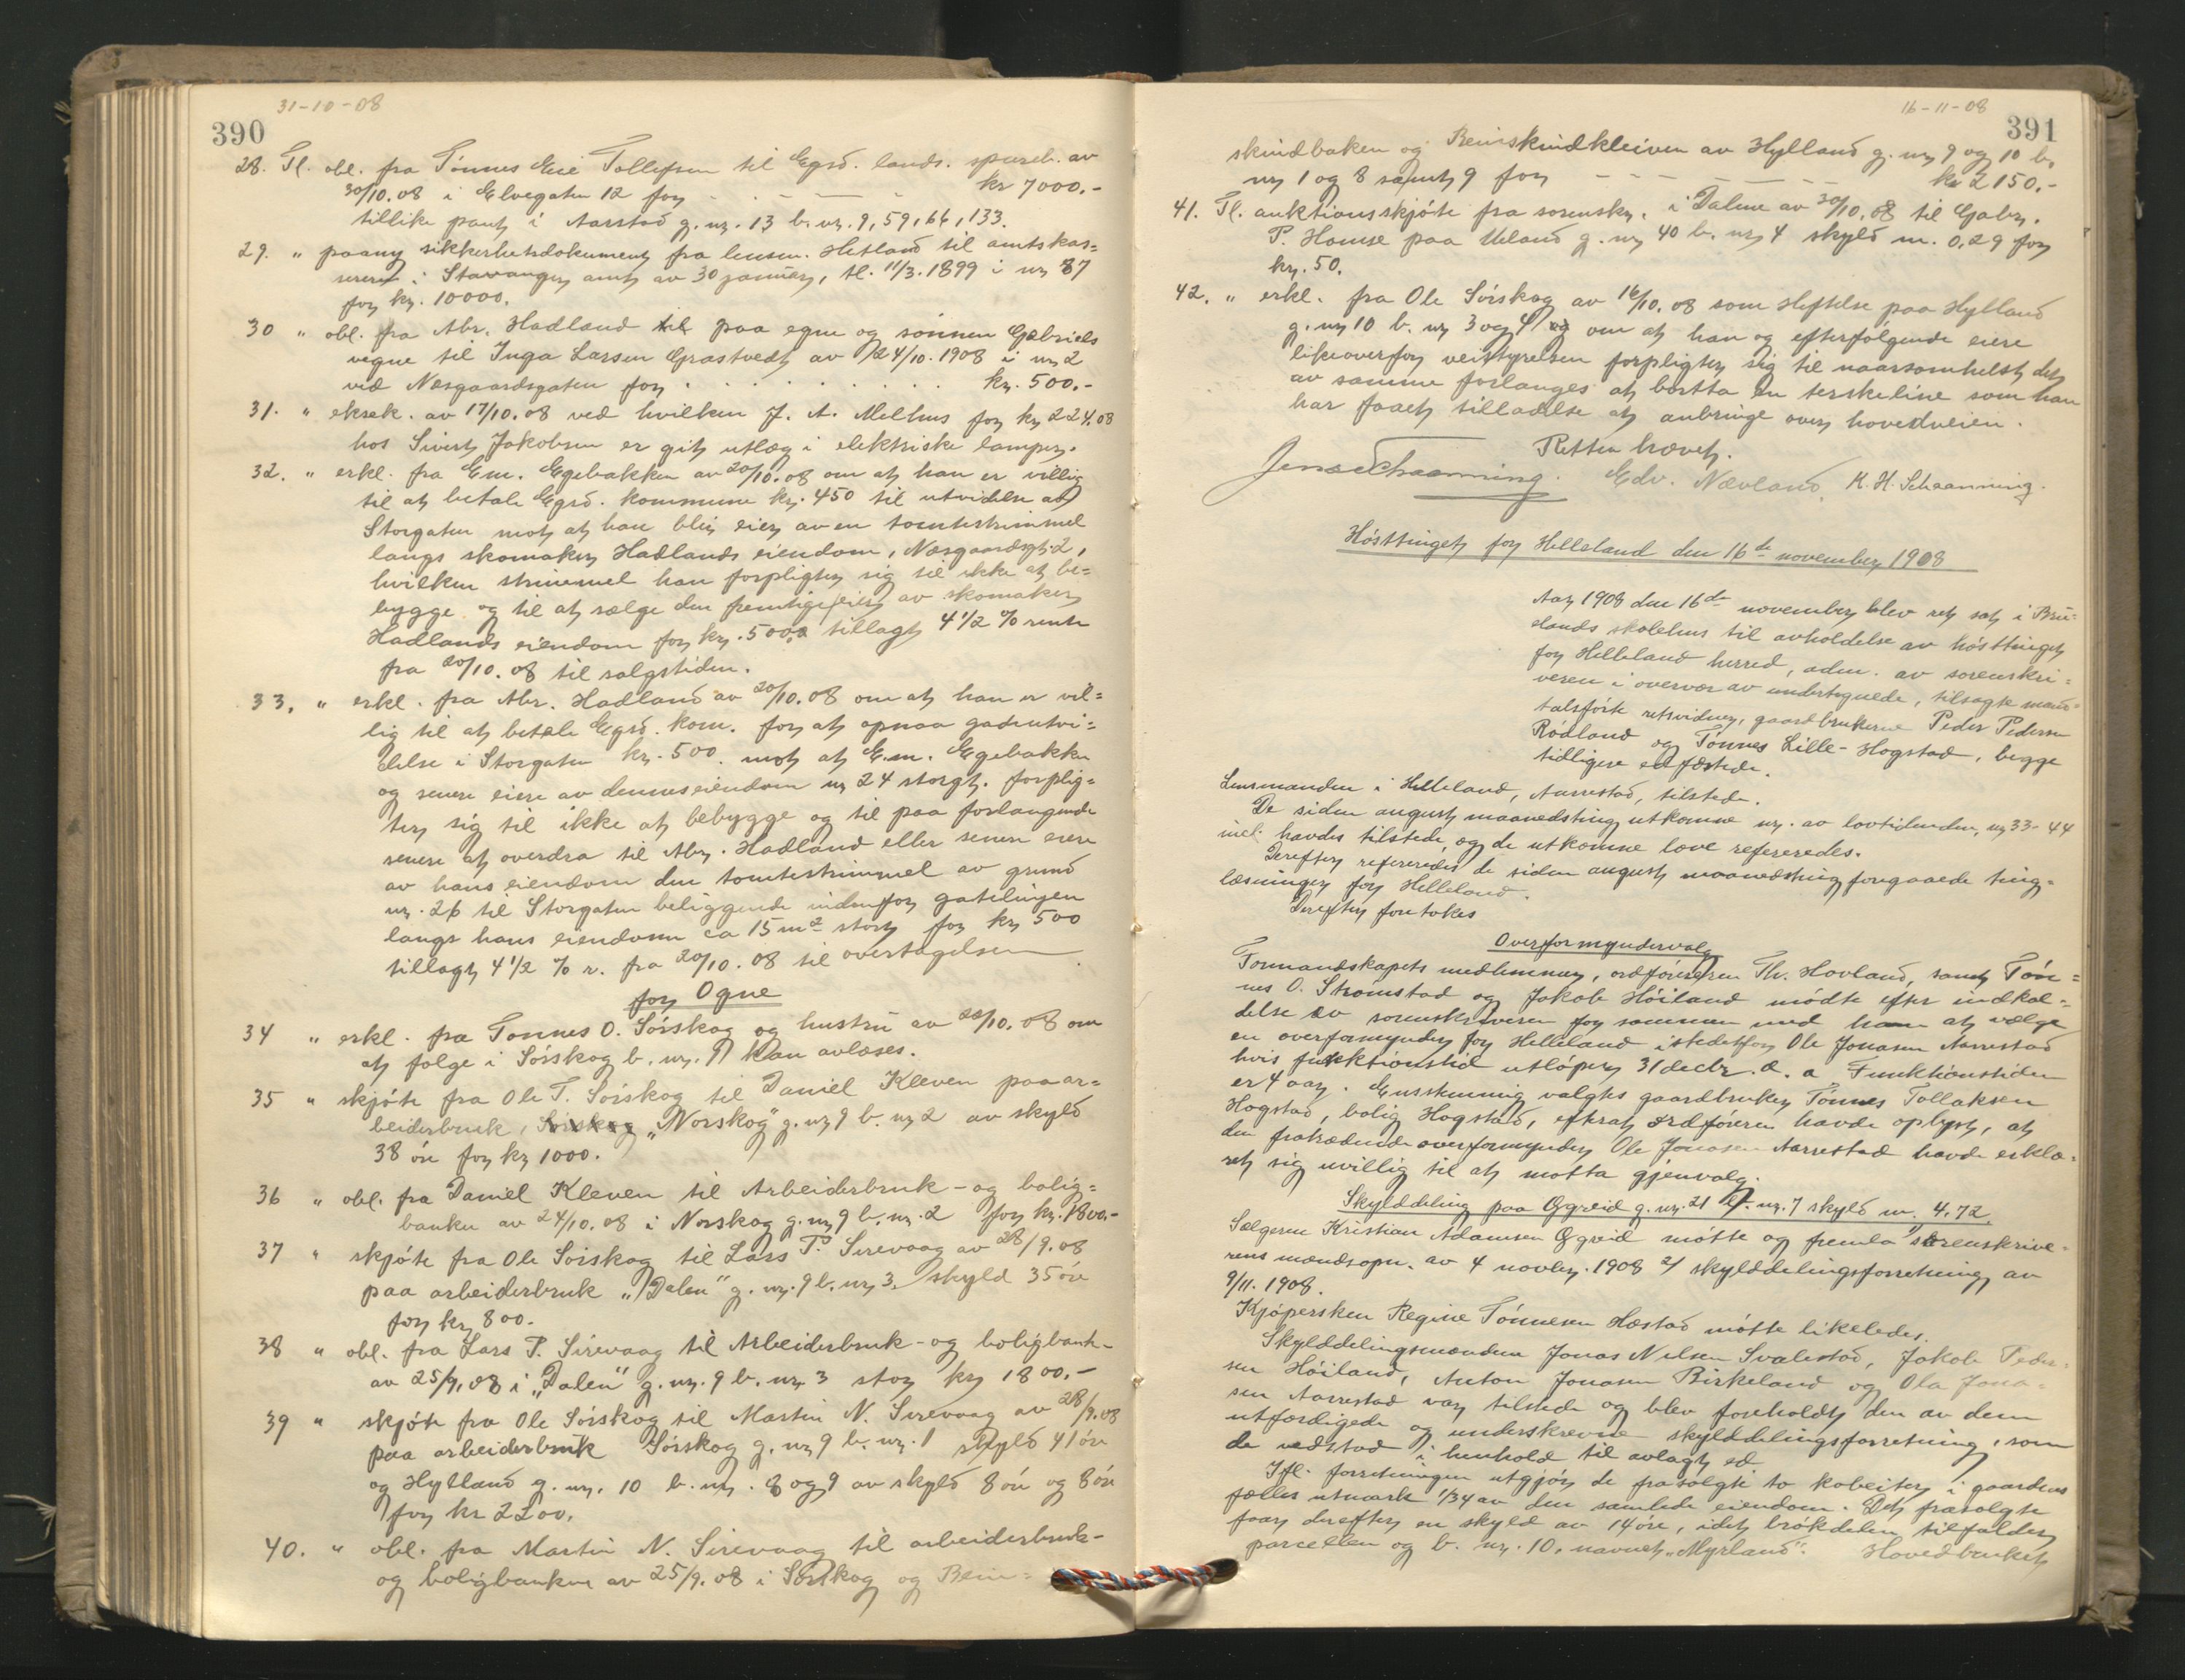 31-10-08
390
28. Tl. obl. fra Tönnes Eie Tollefsen til Egrs. lands. spareb. av
30/10.08 i Elvegaten 12 for - - - kr 7000.-
tillike pant i Aarstad g. nr. 13 b. nr. 9, 59, 66, 133.
29. " paany sikkerhetsdokument fra lensm. Hetland til amtskas=
sereren i Stavanger amt av 30 januar, tl. 11/3.1899 i nr 87
for kr. 10000.
30 " obl. fra Abr. Hadland til paa egne og sönnen Gabriels
vegne til Inga Larsen Grastvedt av 24/10.1908 i nr 2
ved Næsgaardsgaten for . . . . . . . kr. 500.-
31. " eksek. av 17/10.08 ved hvilken J. A. Melhus for kr 224.08
hos Sivert Jakobsen er git utlæg i elektriske lamper.
32. " erkl. fra Em. Egebakken av 20/10.08 om at han er villig
til at betale Egrs. kommune kr. 450 til utvidelse af
Storgaten mot at han blir eier av en tomtestrimmel
langs skomaker Hadlands eiendom, Næsgaardsgt. 2,
hvilken strimmel han forpligter sig til ikke at be=
bygge og til at sælge den fremtige eier av skomaker
Hadlands eiendom for kr. 500,0 tillagt 4 1/2 % rente
fra 20/10.08 til salgstiden.
33. " erkl. fra Abr. Hadland av 20/10.08 om at han er vil=
lig til at betale Egrs. kom. for at opnaa gadeutvi=
delse i Storgaten kr. 500. mot at Em. Egebakken
og senere eiere av dennes eiendom nr 24 storgt. forplig=
ter sig til ikke at bebygge og til paa forlangende
senere at overdra til Abr. Hadland eller senere eiere
av hans eiendom den tomtestrimmel av grund
nr. 26 til Storgaten beliggende indenfor gatelinjen
langs hans eiendom ca 15 m2 stort for kr 500
tillagt 4 1/2 % r. fra 20/10.08 til overtagelsen
for Ogne
34 " erkl. fra Tonnes O. Sörskog og hustru av 20/10.08 om
at folge i Sörskog b. nr. 9 kan avlæses.
35 " skjöte fra Ole T. Sörskog til Daniel Kleven paa ar=
beiderbruk, Sörskog "Norskog" g. nr 9 b. nr 2 av skyld
38 öre for kr 1000.
36 " obl. fra Daniel Kleven til Arbeiderbruk- og bolig=
banken av 24/10.08 i Norskog g. nr 9 b. nr. 2 for kr. 1800.-
37 " skjöte fra Ole Sörskog til Lars P. Sirevaag av 28/9.08
paa arbeiderbruk "Dalen" g. nr. 9 b. nr 3. skyld 35 öre
for kr 800.
38 " obl. fra Lars P. Sirevaag til Arbeiderbruk- og boligbank-
av 25/9.08 i "Dalen" g. nr. 9 b. nr. 3 stor kr 1800.-
39 " skjöte fra Ole Sörskog til Martin N. Sirevaag av 28/9.08
paa arbeiderbruk Sörskog g. nr 9 b. nr. 1 skyld 41 öre
og Hylland g. nr. 10 b. nr. 8 og 9 av skyld 8 öre og 8 öre
for kr 2200.
40. " obl. fra Martin N. Sirevaag til arbeiderbruk-
og boligbanken av 25/9.08 i Sörskog og Bein=
16-11-08
391
skindbaken og Beinskindkleiven av Hylland g. nr 9 og 10 b.
nr 1 og 8 samt 9 for - - - kr 2150.-
41. Tl. auktionsskjöte fra sorenskr. i Dalene av 30/10.08 til Gabr.
P. Homse paa Ueland g. nr 40 b. nr 4 skyld m. 0,29 for
kr. 50.
42. " erkl. fra Ole Sörskog av 16/10.08 som heftelse paa Hylland
g. nr 10 b. nr 3 og 4 og om at han og efterfölgende eiere
likeoverfor veistyrelsen forpligter sig til naarsomhelst det
av samme forlanges at bortta en terskeline som han
har faaet tilladelse at anbringe over hovedveien.
Retten hævet.
Jens Schaanning. Edv. Nævland. K. H. Schaanning.
Hösttinget for Helleland den 16de november 1908
Aar 1908 den 16de november blev ret sat i Bru=
elands skolehus til avholdelse av hösttinget
for Helleland herred, adm. av sorenskri=
veren i overvær av undertegnede, tilsagte mand=
talsförte retsvidner, gaardbrukerne Peder Pedersen
Rödland og Tönnes Lille-Hogstad, begge
tidligere edfæstede.
Lensmanden i Helleland, Aarrestad, tilstede.
De siden august maanedsting utkomne nr. av lovtidenden, nr 33-44
inkl. havdes tilstede, og de utkomne love refereredes.
Derefter refereredes de siden august maanedsting foregaaede ting=
læsninger for Helleland.
Derefter foretokes
Overformyndervalg
Formandskapets medlemmer, ordföreren Th. Hovland, samt Tön=
nes O. Strömstad og Jakob Höiland mödte efter indkal=
delse av sorenskriveren for sammen med ham at vælge
en overformynder for Helleland istedetfor Ole Jonasen Aarrestad
hvis funktionstid utlöper 31 decbr. d. a Funktionstiden
er 4 aar. Enstemmig valgtes gaardbruker Tönnes Tollaksen
Hogstad, bolig Hogstad, efterat ordföreren havde oplyst, at
den fratrædende overformynder Ole Jonasen Aarrestad havde erklæ=
ret sig uvillig til at motta gjenvalg.
Skylddeling paa Ogreid g. nr. 21 b. nr. 7 skyld m. 4,72.
Sælgeren Kristian Adamsen Ogreid mötte og fremla 1/ sorenskrive=
rens mændsopn. av 4 novbr. 1908 2/ skylddelingsforretning av
9/11.1908.
Kjöpersken Regine Tönnesen Hæstad mötte likeledes.
Skylddelingsmændene Jonas Nilsen Svalestad, Jakob Peder=
sen Höiland, Anton Jonasen Birkeland og Ola Jona=
sen Aarrestad var tilstede og blev foreholdt den av dem
utfærdigede og underskrevne skylddelingsforretning, som
de vedstod i henhold til avlagt ed
Ifl. forretningen utgjör de frasolgte to kobeiter i gaardens
fælles utmark 1/34 av den samlede eiendom. Det frasolgte
faar derefter en skyld av 14 öre, idet brökdelen tilfalder
parcellen og b. nr. 10, navnet "Myrland". Hovedbruket